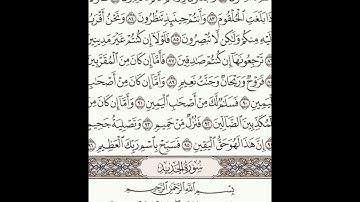 ذَا بَلَغَتِ ٱلْحُلْقُومَ ۝٨٣ وَأَنتُمْ حِينَئِذٍ تَنظُرُونَ ۝٨٤ وَنَحْنُ أَقْرَبُ
إِلَيْهِ مِنكُمْ وَلَٰكِن لَّا تُبْصِرُونَ ۝٨٥ فَلَوْلَآ إِن كُنتُمْ غَيْرَ مَدِينِينَ
تَرْجِعُونَهَآ إِن كُنتُمْ صَٰدِقِينَ ۝٨٧ فَأَمَّآ إِن كَانَ مِنَ ٱلْمُقَرَّبِينَ
فَرَوْحٌ وَرَيْحَانٌ وَجَنَّتُ نَعِيمٍ ۝٨٩ وَأَمَّآ إِن كَانَ مِنْ أَصْحَٰبِ
ٱلْيَمِينِ ۝٩٠ فَسَلَٰمٌ لَّكَ مِنْ أَصْحَٰبِ ٱلْيَمِينِ ۝٩١ وَأَمَّآ إِن كَانَ مِنَ
ٱلْمُكَذِّبِينَ ٱلضَّآلِّينَ ۝٩٢ فَنُزُلٌ مِّنْ حَمِيمٍ ۝٩٣ وَتَصْلِيَةُ جَحِيمٍ
إِنَّ هَٰذَا لَهُوَ حَقُّ ٱلْيَقِينِ ۝٩٥ فَسَبِّحْ بِٱسْمِ رَبِّكَ ٱلْعَظِيمِ ۝٩٦
سُورَةُ الحَدِيدِ
بِسْمِ ٱللَّهِ ٱلرَّحْمَٰنِ ٱلرَّحِيمِ